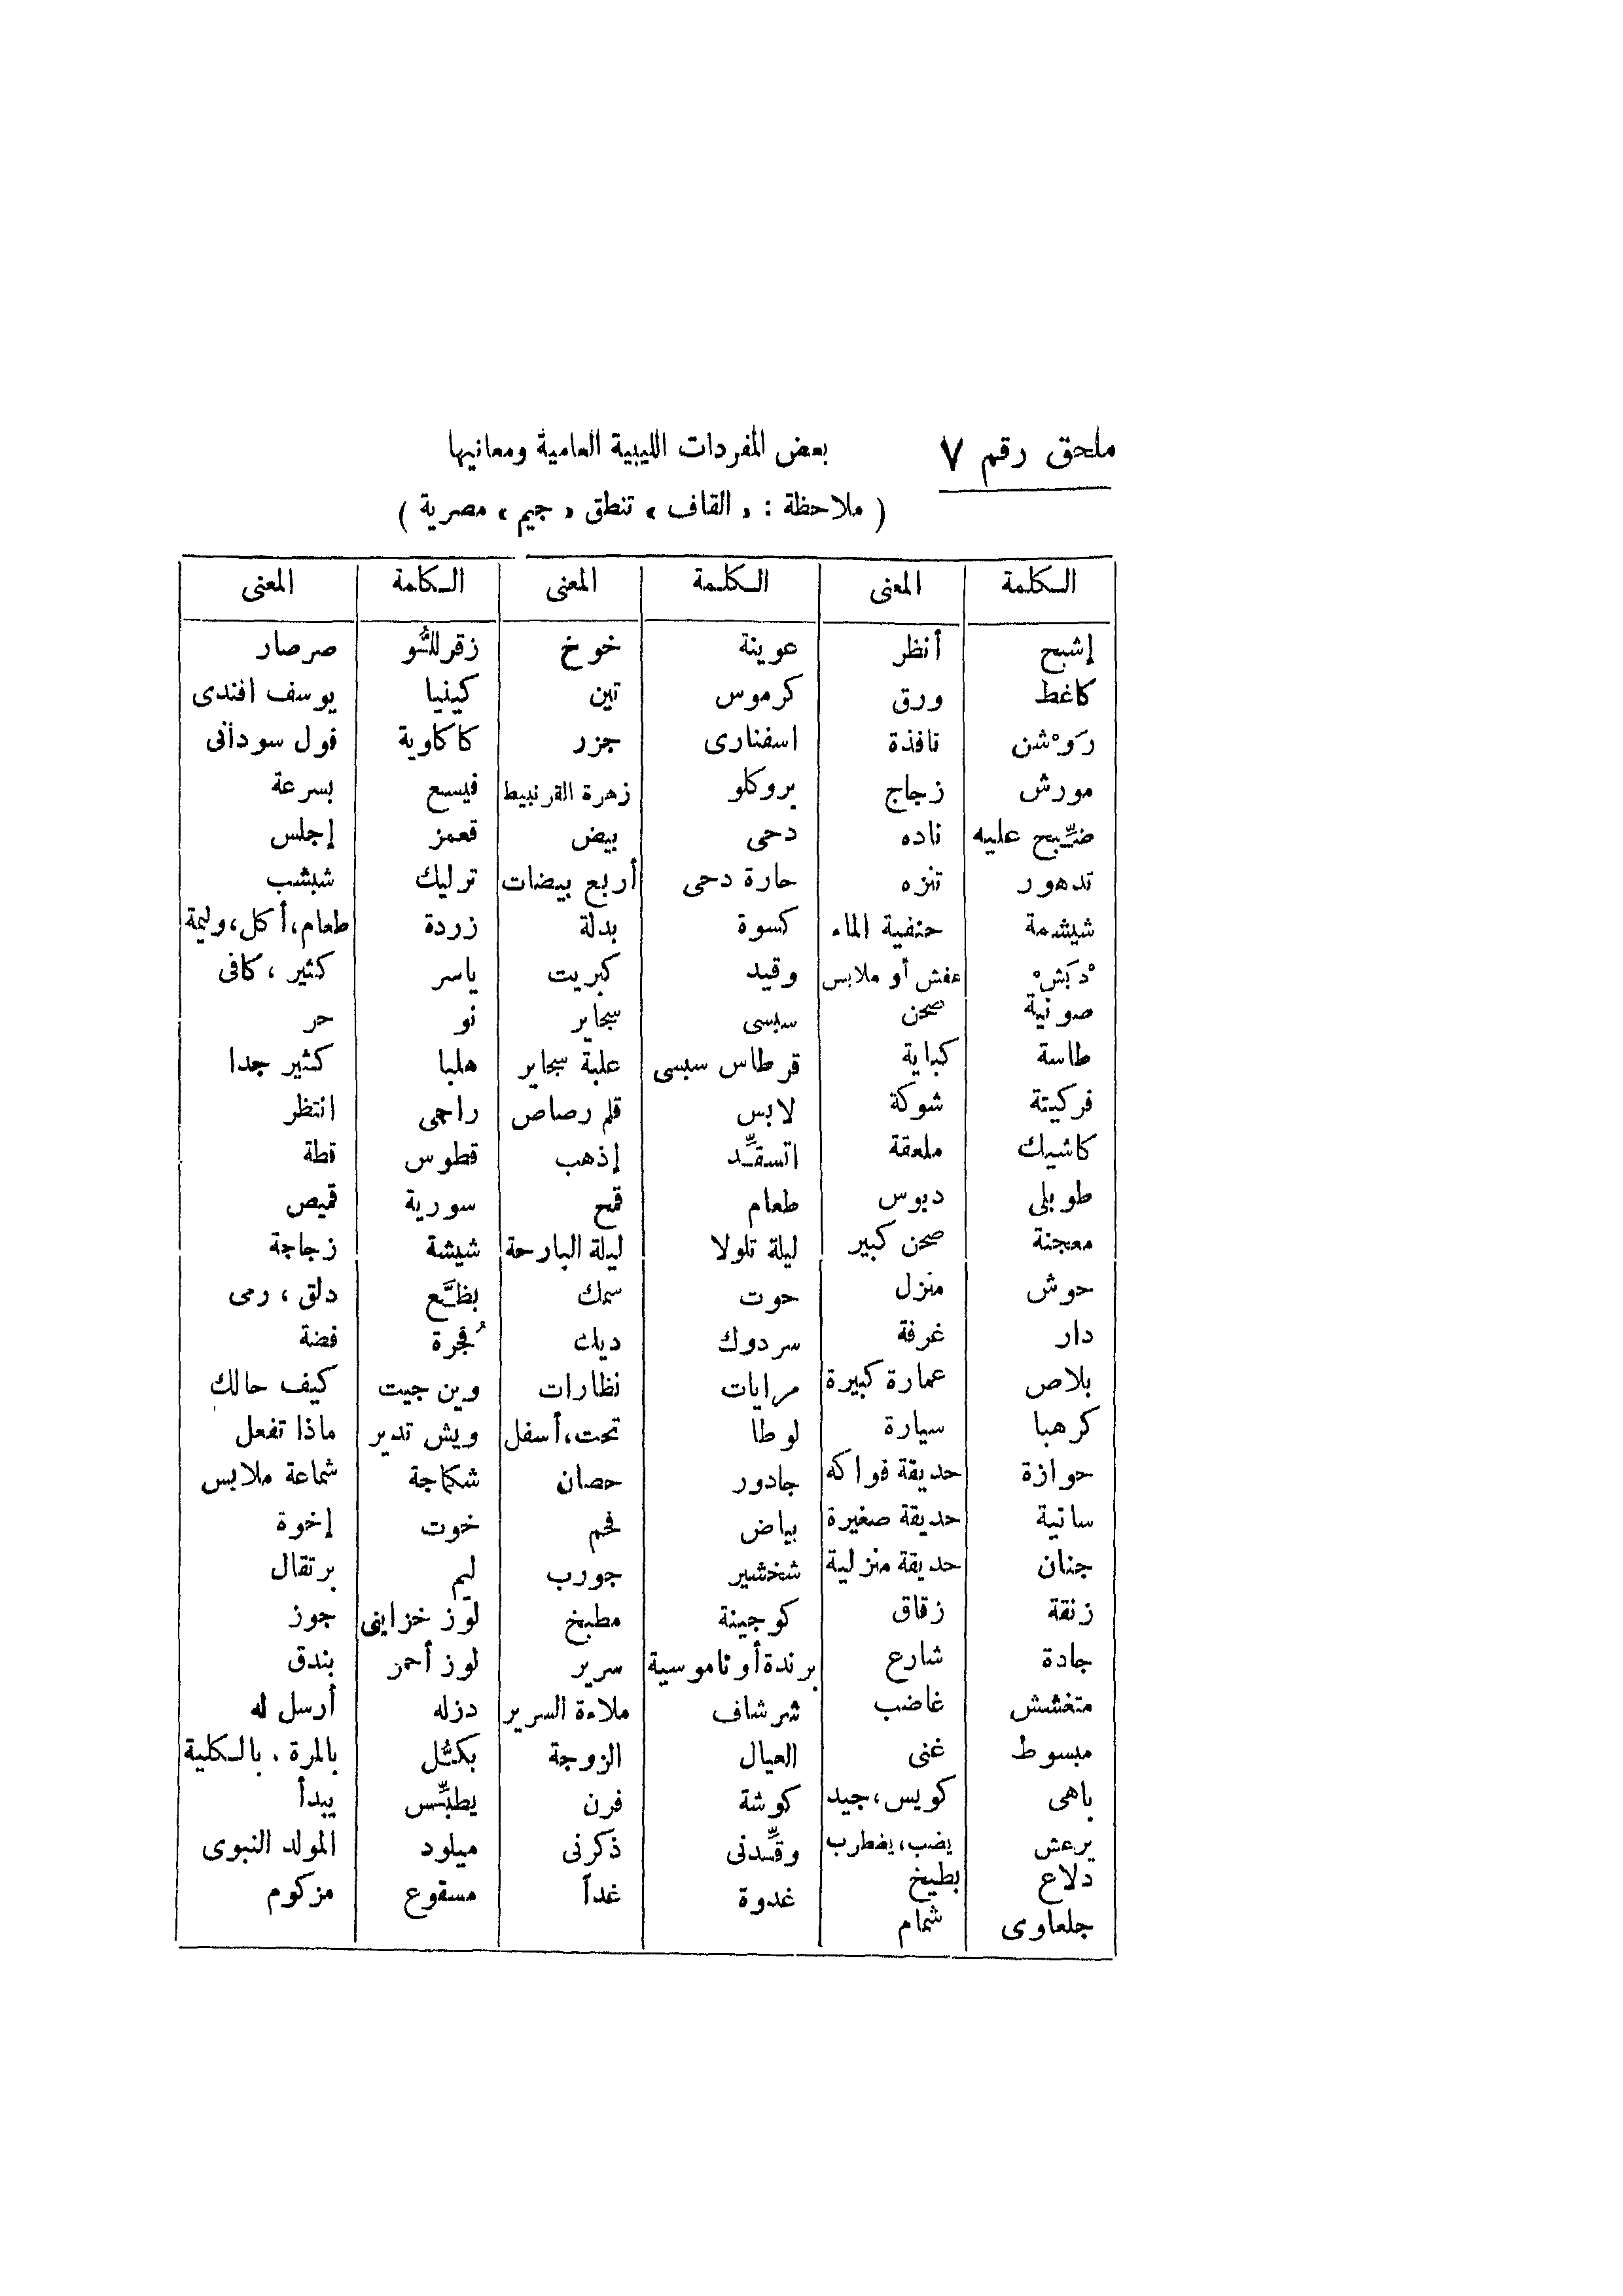 ملحق رقم ٧ بعض المفردات الليبية العامية ومعانيها
( ملاحظة : « القاف » تنطق « جيم » مصرية )
الكلمة المعنى الكلمة المعنى الكلمة المعنى
إشبح أنظر عوينة خوخ زقرللّو صرصار
كاغط ورق كرموس تين كينيا يوسف افندى
رَوْشن نافذة اسفنارى جزر كاكاوية فول سودانى
مورش زجاج بروكلو زهرة القرنبيط فيسع بسرعة
ضبِّح عليه ناده دحى بيض قعمز إجلس
تدهور تنزه حارة دحى أربع بيضات ترليك شبشب
شيشمة حنفية الماء كسوة بدلة زردة طعام، أكل، وليمة
دبَش عفش أو ملابس وقيد كبريت ياسر كثير ، كافى
صونية صحن سبسى سجاير نو حر
طاسة كباية قرطاس سبسى علبة سجاير هلبا كثير جدا
فركيتة شوكة لابس قلم رصاص راجى انتظر
كاشيك ملعقة اتسقِّد إذهب قطوس قطة
طوبلى دبوس طعام قمح سورية قميص
معجنة صحن كبير ليلة تلولا ليلة البارحة شيشة زجاجة
حوش منزل حوت سمك بظَّع دلق ، رمى
دار غرفة سردوك ديك ُقجرة فضة
بلاص عمارة كبيرة مرايات نظارات وين جيت كيف حالك
كرهبا سيارة لوطا تحت، أسفل ويش تدير ماذا تفعل
حوازة حديقة فواكه جادور حصان شكماجة شماعة ملابس
سانية حديقة صغيرة بياض فحم خوت إخوة
جنان حديقة منزلية شخشير جورب ليم برتقال
زنقة زقاق كوجينة مطبخ لوز خزاينى جوز
جادة شارع برندة أو ناموسية سرير لوز أحمر بندق
متغشش غاضب شرشاف ملاءة السرير دزله أرسل له
مبسوط غنى العيال الزوجة بكلّ بالمرة . بالكلية
باهى كويس، جيد كوشة فرن يطبِّس يبدأ
يرعش يضب، يضطرب وقِّدنى ذكرنى ميلود المولد النبوى
دلاع بطيخ غدوة غداً مسقوع مزكوم
جلعاوى شمام